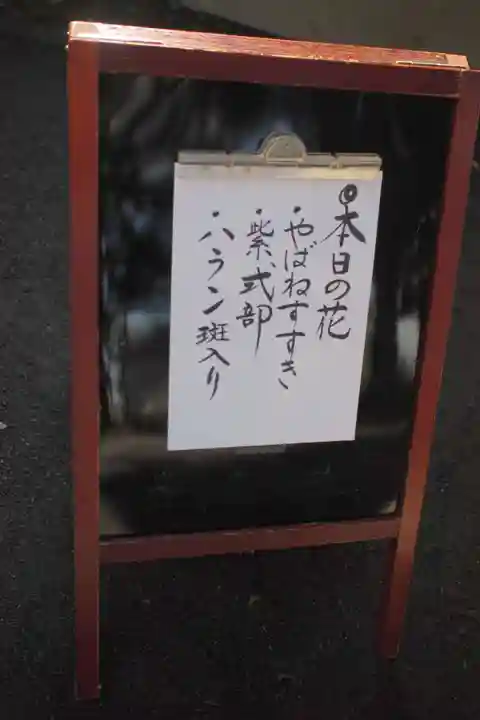 ◉本日の花
・やばねすすき
・紫式部
・ハラン斑入り